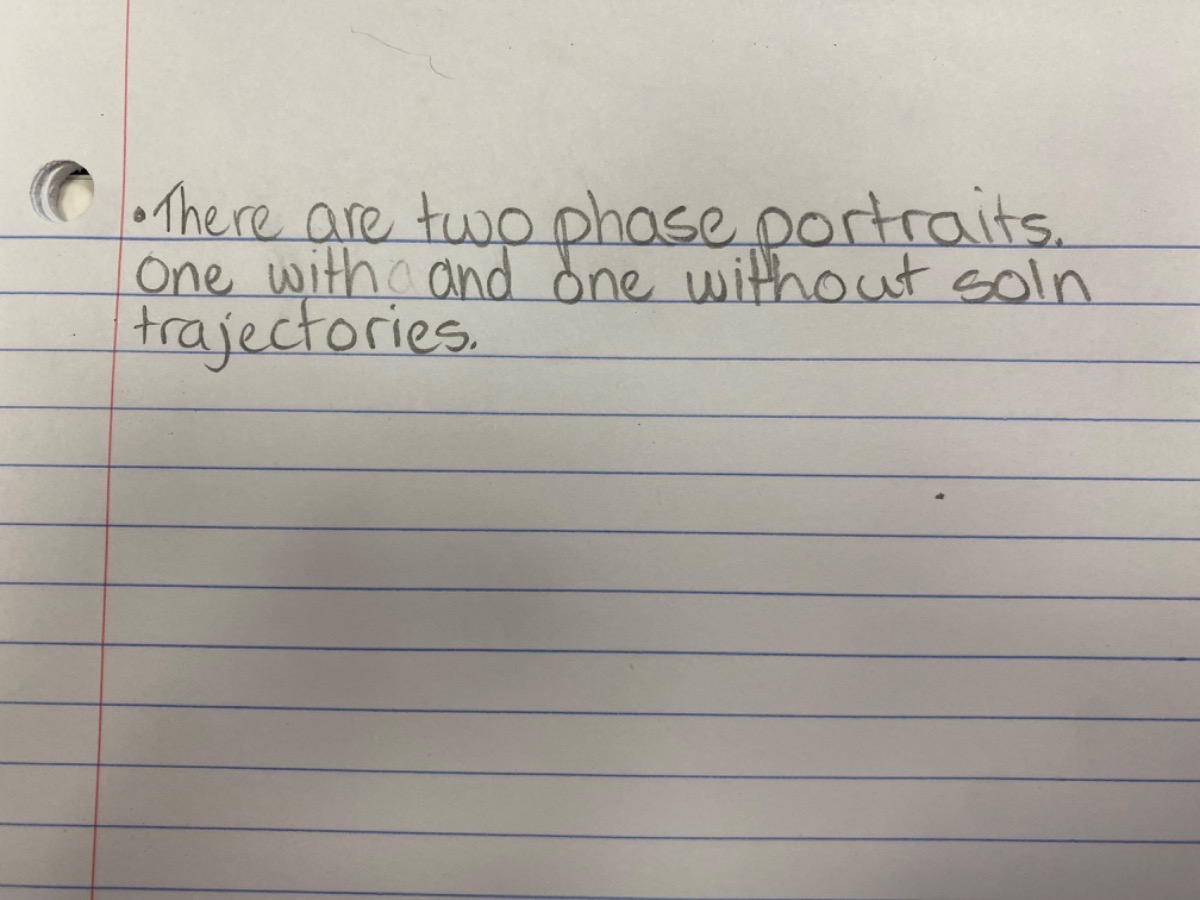 • There are two phase portraits.
One with and one without soln
trajectories.